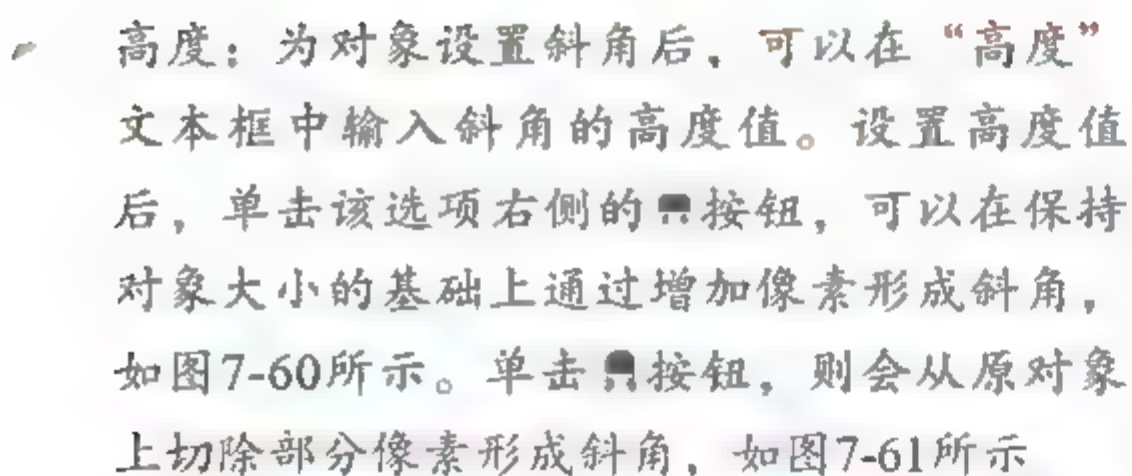 高度：为对象设置斜角后，可以在“高度”
文本框中输入斜角的高度值。设置高度值
后，单击该选项右侧的按钮，可以在保持
对象大小的基础上通过增加像素形成斜角，
如图7-60所示。单击按钮，则会从原对象
上切除部分像素形成斜角，如图7-61所示